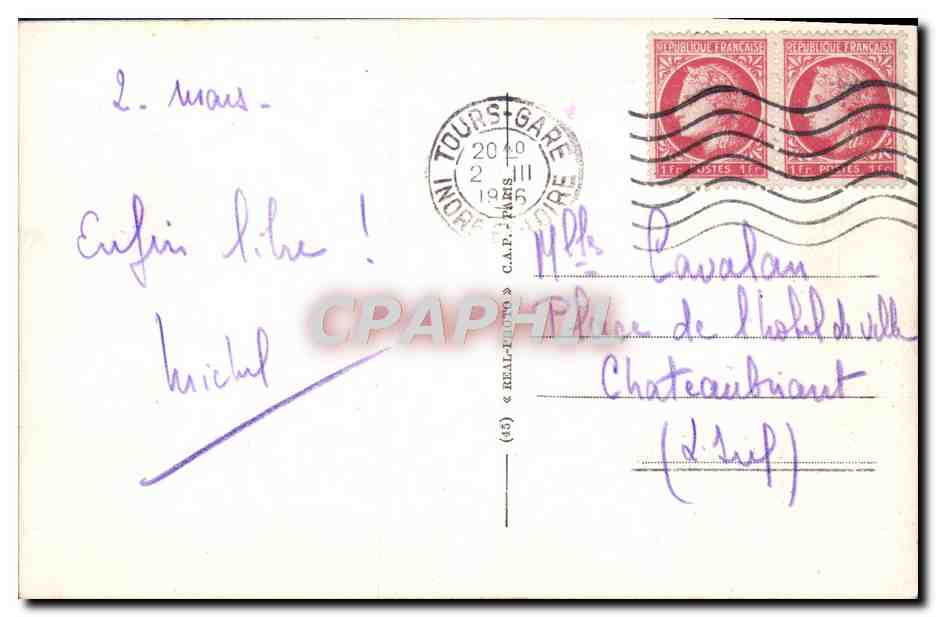 2 - mars -
Enfin libre !
Michel
TOURS-GARE
20H
2 III
19 6
INDRE LOIRE
REPUBLIQUE FRANÇAISE
1 Fr POSTES 1 Fr
REPUBLIQUE FRANÇAISE
1 Fr POSTES 1 Fr
(45) « REAL-PHOTO » C.A.P. - PARIS
Mlle Cavalan
Place de l'hotel de ville
Chateaubriant
(L. Inf)
CPAPHIL